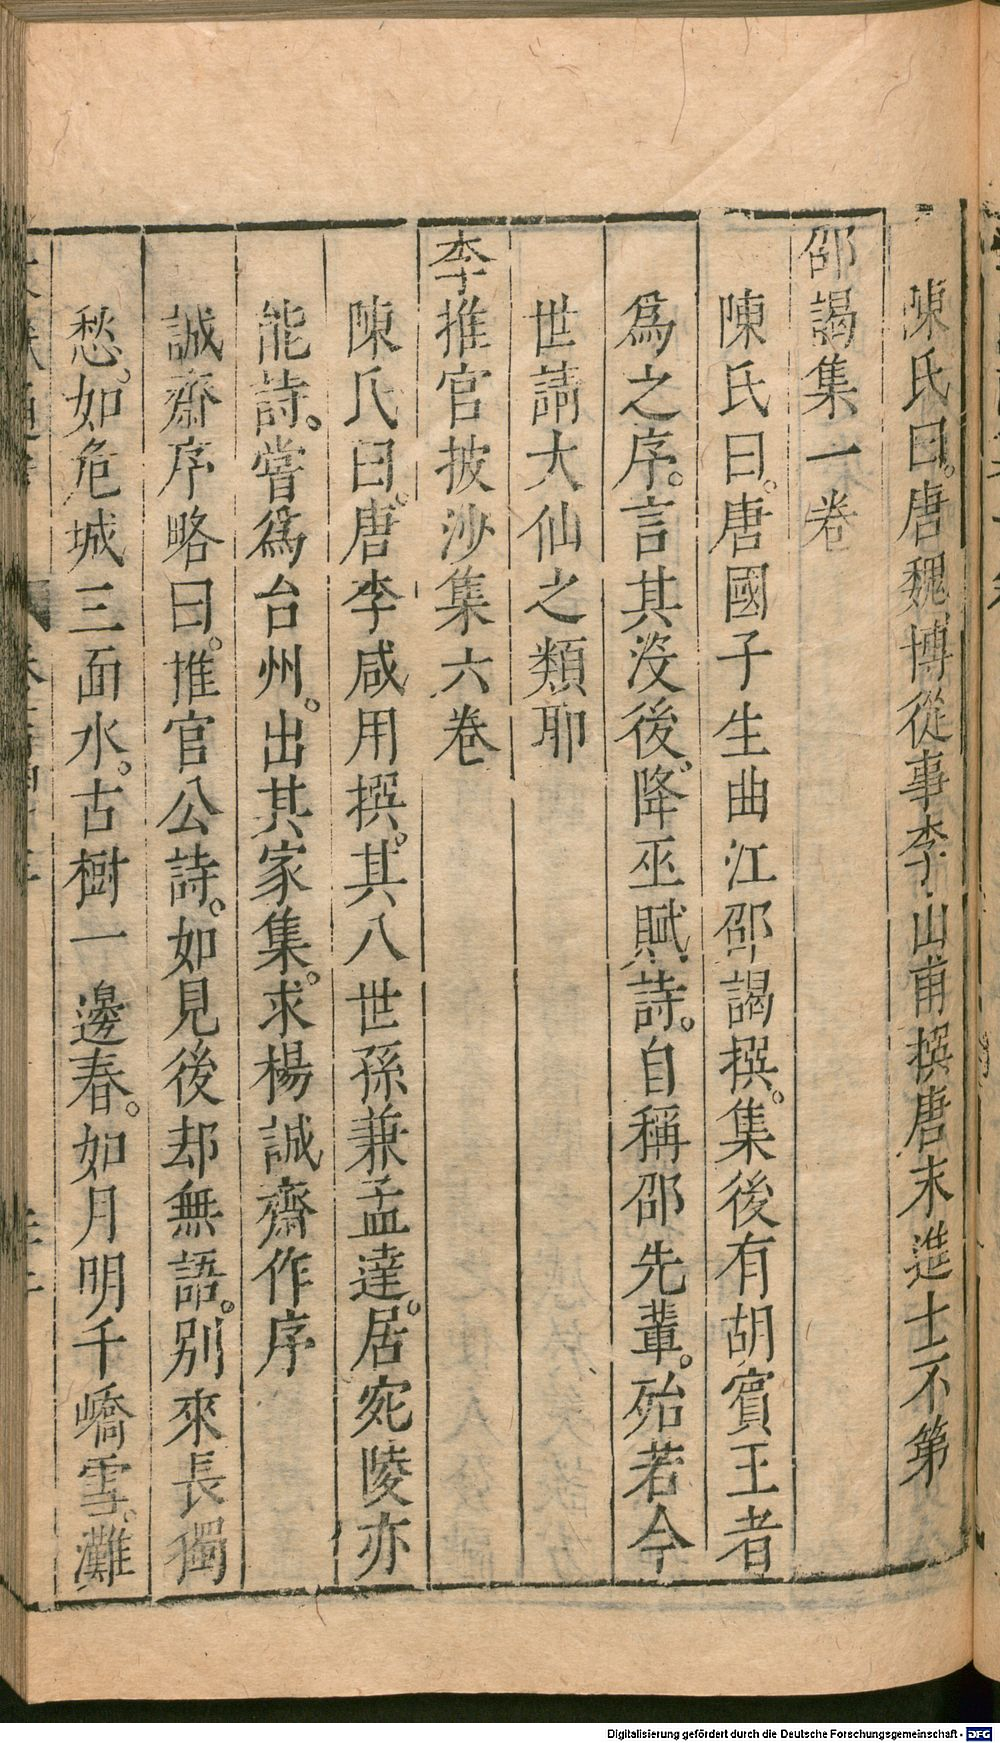 陳氏曰。唐魏博從事李山甫撰唐末進士不第
邵謁集一卷
陳氏曰。唐國子生曲江邵謁撰。集後有胡賓王者
爲之序。言其沒後。降巫賦詩。自稱邵先輩。殆若今
世請大仙之類耶
李推官披沙集六卷
陳氏曰。唐李咸用撰。其八世孫兼孟達。居宛陵亦
能詩。嘗爲台州。出其家集。求楊誠齋作序
誠齋序略曰。推官公詩。如見後却無語。別來長獨
愁。如危城三面水。古樹一邊春。如月明千嶠雪。灘
Digitalisierung gefördert durch die Deutsche Forschungsgemeinschaft - DFG